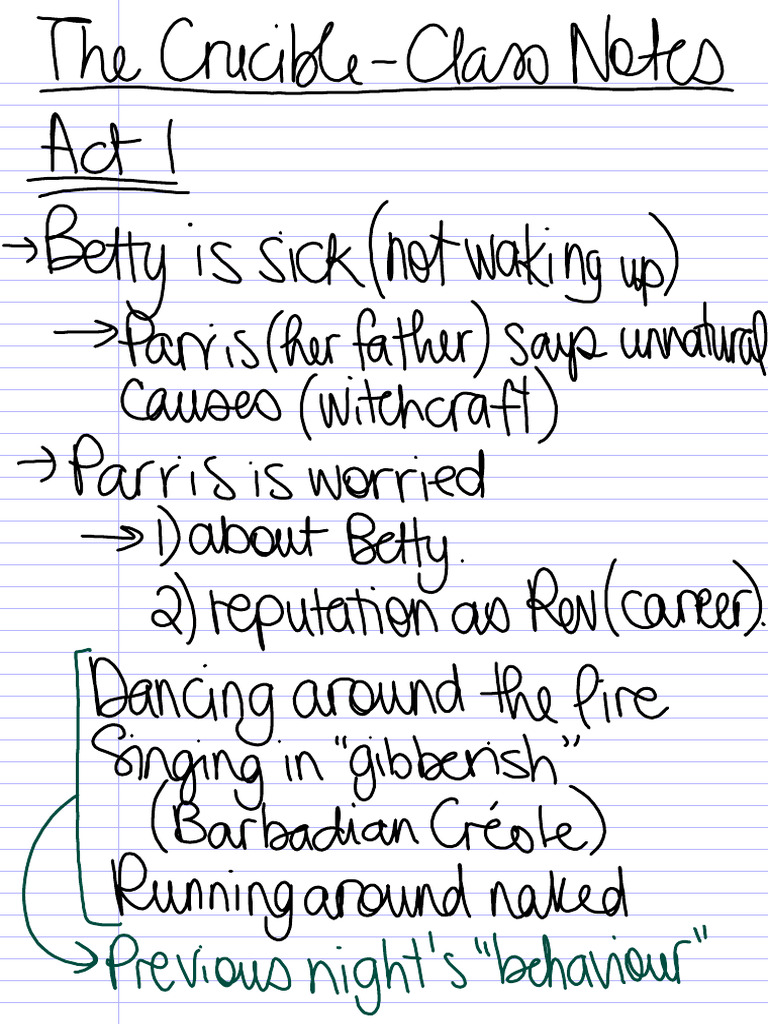 The Crucible - Class Notes
Act 1
→ Betty is sick (not waking up)
→ Parris (her father) says unnatural
causes (witchcraft)
→ Parris is worried
→ 1) about Betty.
2) reputation as Rev (career).
Dancing around the fire
Singing in "gibberish"
(Barbadian Créole)
Running around naked
→ Previous night's "behaviour"